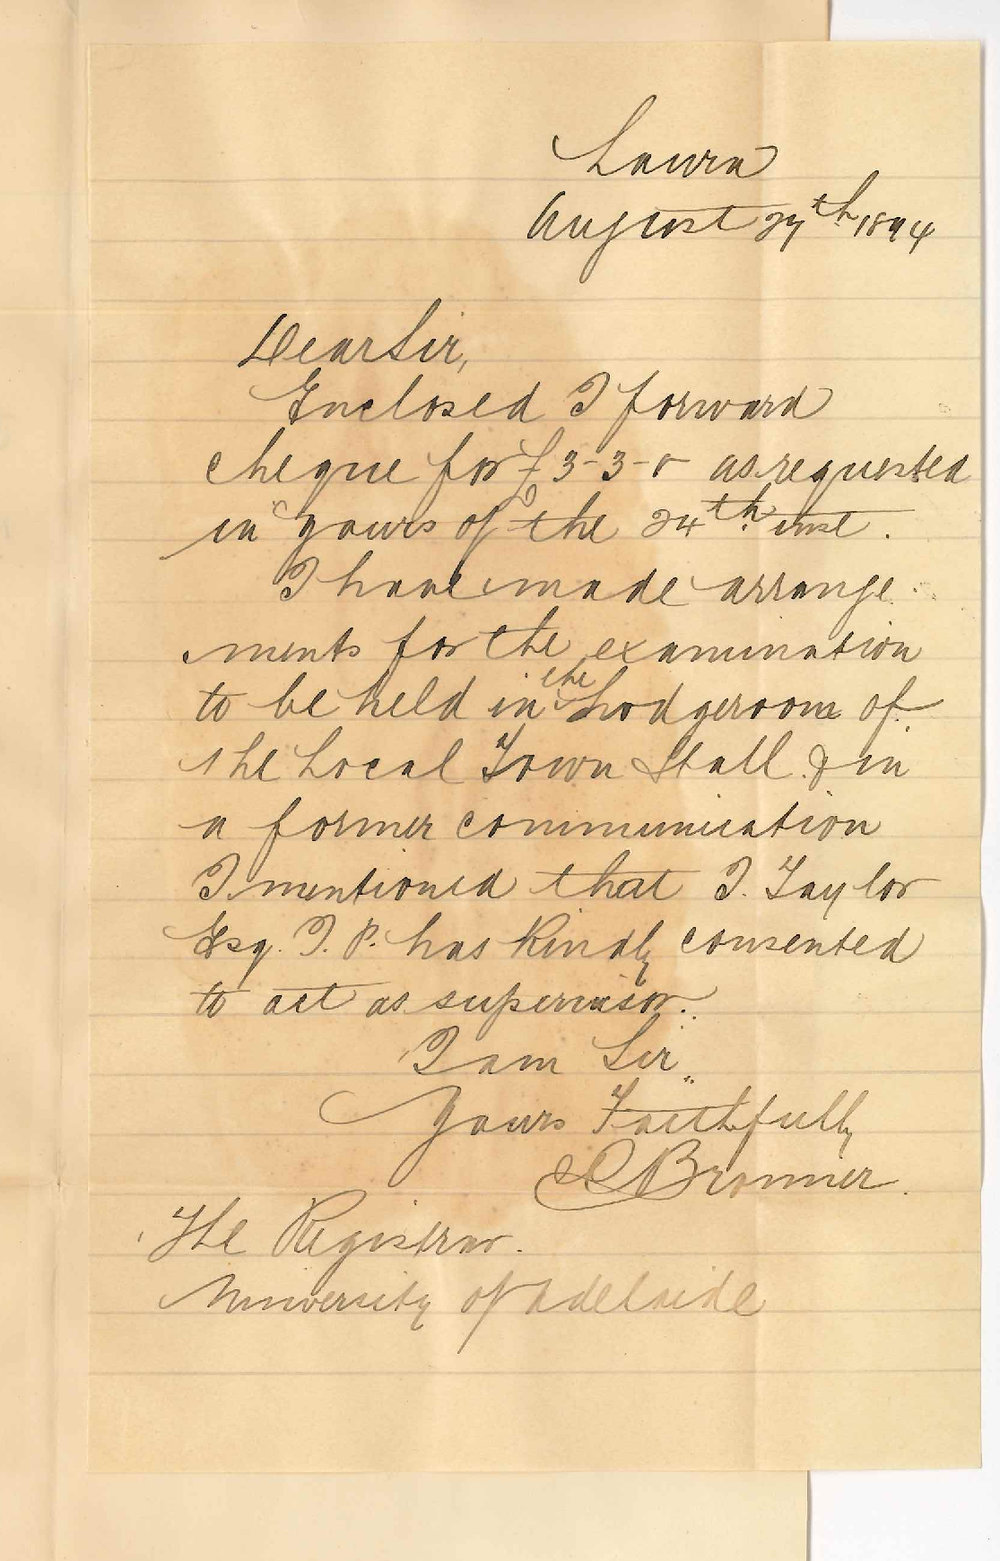 Laura
August 27th 1894
Dear Sir,
Enclosed I forward
cheque for £3-3-0 as requested
in yours of the 24th inst.
I have made arrange
ments for the examination
to be held in the Lodgeroom of
the Local Town Hall & in
a former communication
I mentioned that J. Taylor
Esq. J. P. has kindly consented
to act as supervisor.
I am Sir
Yours Faithfully
C Bronner.
The Registrar.
University of Adelaide